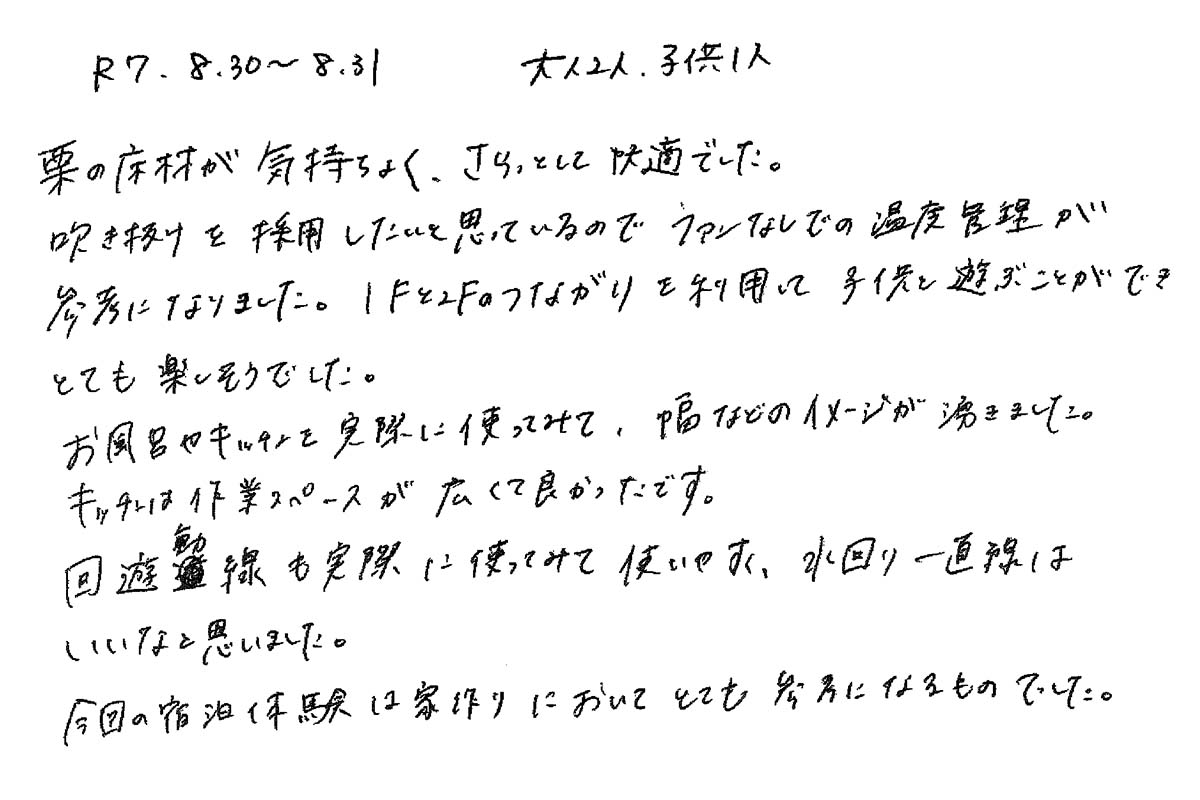 R7.8.30～8.31　大人2人.子供1人
栗の床材が気持ちよく、さらっとして快適でした。
吹き抜けを採用したいと思っているのでファンなしでの温度管理が
参考になりました。1Fと2Fのつながりを利用して子供と遊ぶことができ
とても楽しそうでした。
お風呂やキッチンを実際に使ってみて、幅などのイメージが湧きました。
キッチンは作業スペースが広くて良かったです。
回遊動線も実際に使ってみて使いやすく、水回り一直線は
いいなと思いました。
今回の宿泊体験は家作りにおいてとても参考になるものでした。